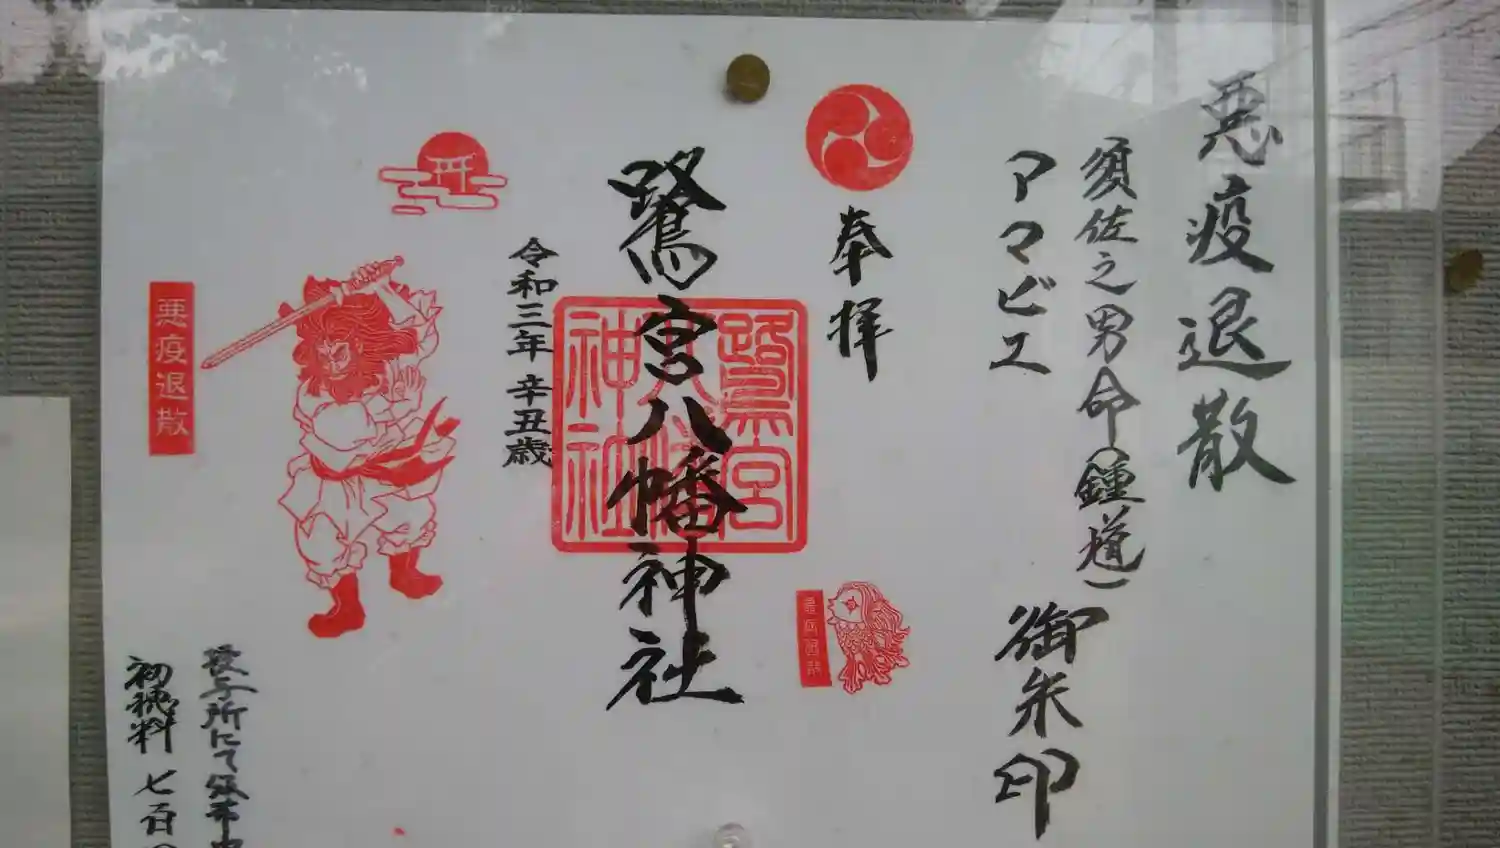 悪疫退散
須佐之男命(鍾馗)
アマビエ
御朱印
奉拝
鷺宮八幡神社
鷺宮
八幡
神社
令和三年 辛丑歳
悪疫退散
授与所にて頒布中
初穂料 七百